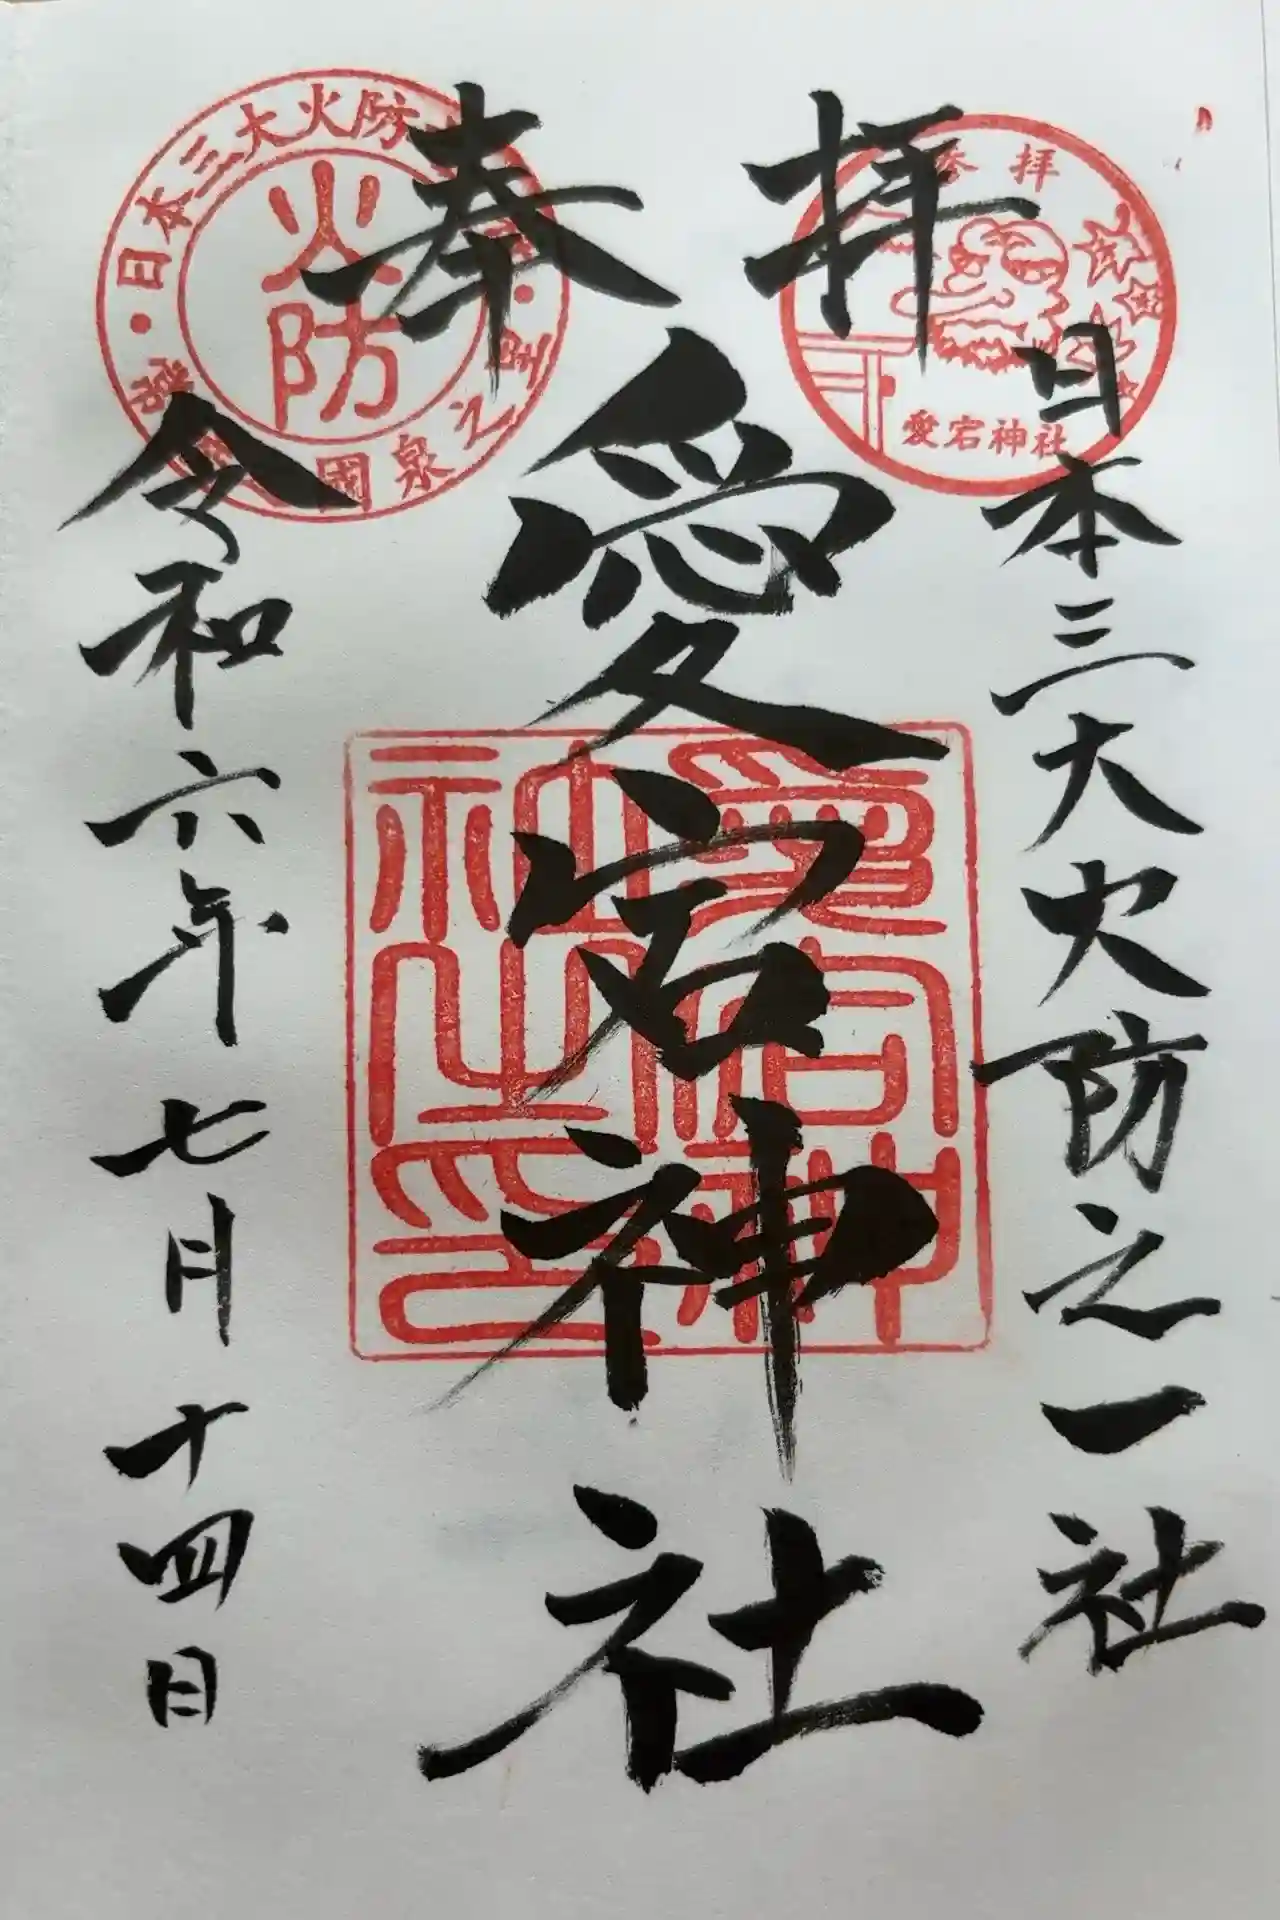 奉拝
日本三大火防之一社
愛宕神社
令和六年七月十四日
参拝
愛宕神社
日本三大火防
火防
國泉之里
愛宕神
社之印